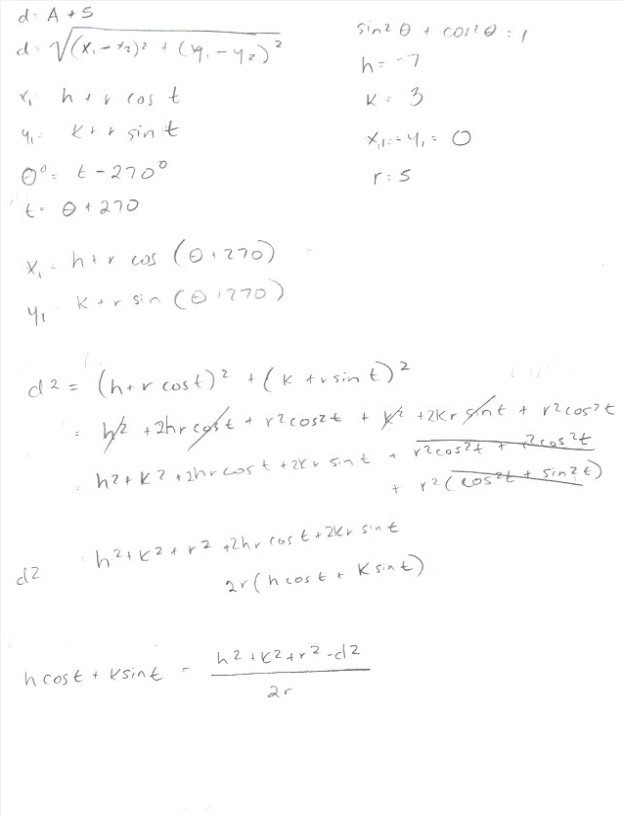 d = A + S
d = √(x₁ - x₂)² + (y₁ - y₂)²
x₁ = h + r cos t
y₁ = k + r sin t
θ° = t - 270°
t = θ + 270
x₁ = h + r cos (θ + 270)
y₁ k + r sin (θ + 270)
sin² θ + cos² θ = 1
h = -7
k = 3
x₁ = y₁ = 0
r = 5
d2 = (h + r cos t)² + (k + r sin t)²
= h² + 2hr cos t + r² cos² t + k² + 2kr sin t + r² cos² t
= h² + k² + 2hr cos t + 2kr sin t + r² cos² t + r² cos² t
+ r² (cos² t + sin² t)
d2 h² + k² + r² + 2hr cos t + 2kr sin t
2r (h cos t + k sin t)
h cos t + k sin t = h² + k² + r² - d2
2r